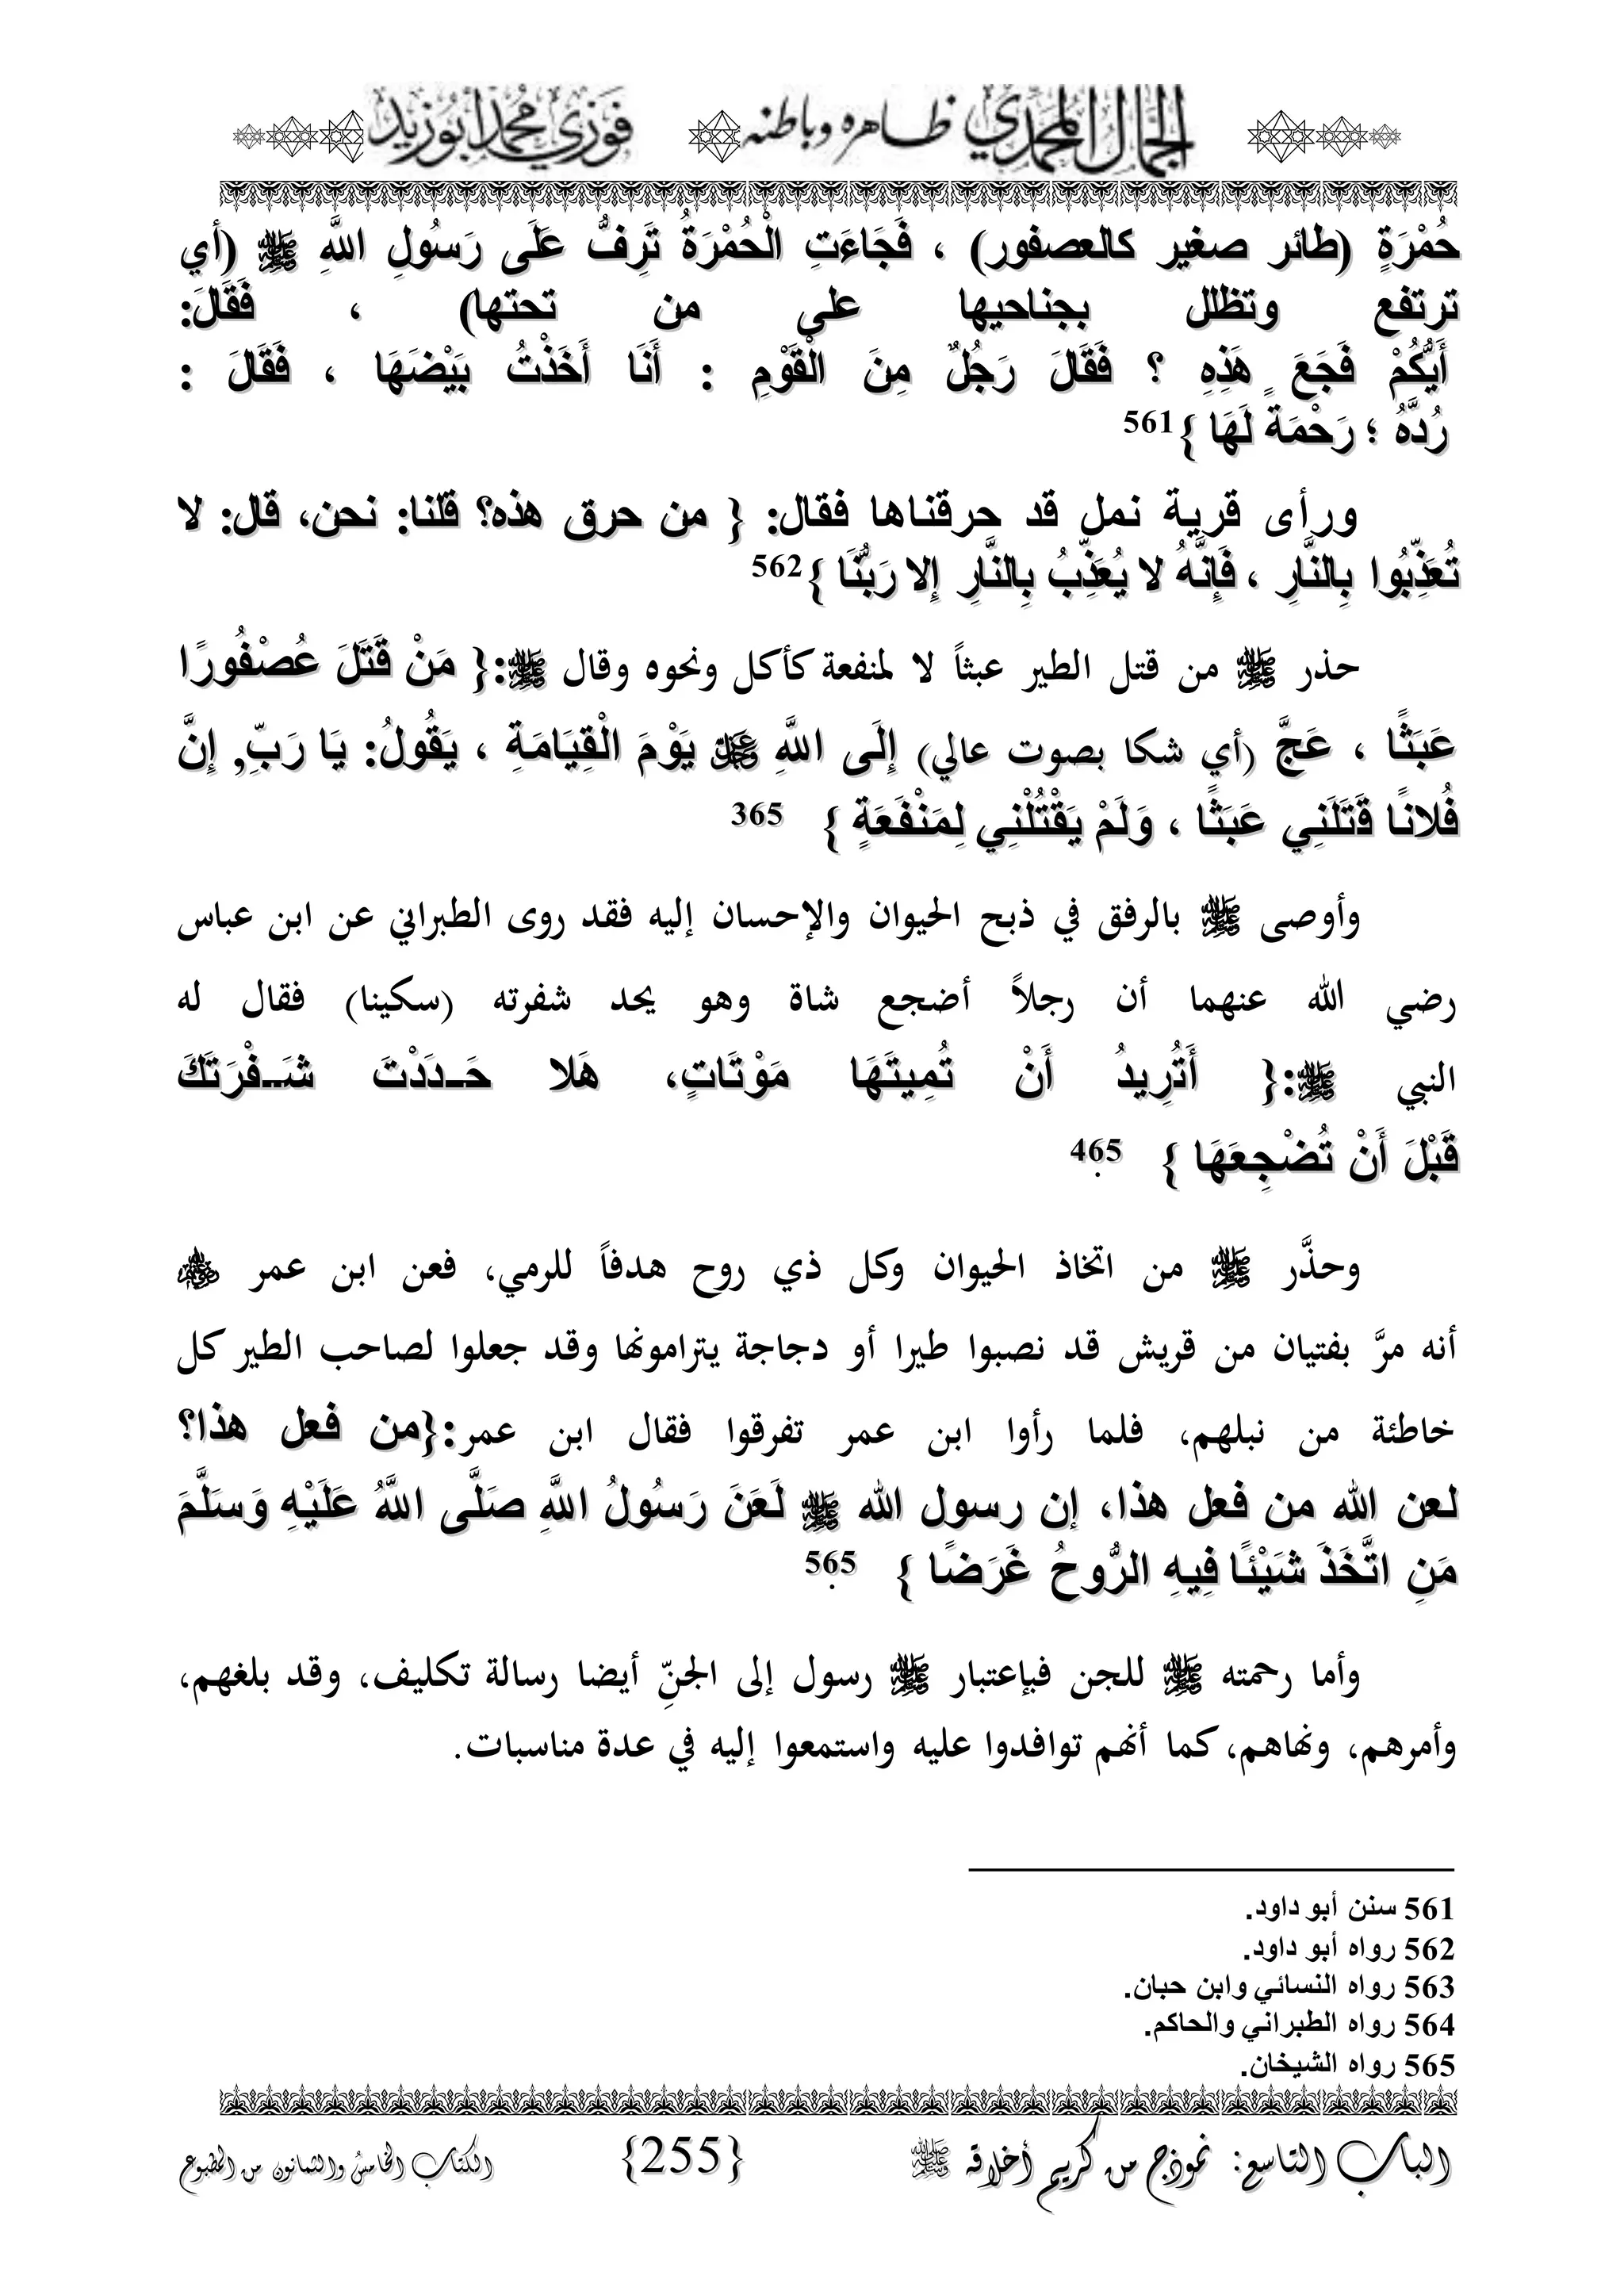 الجمال المحمدي ظاهره وباطنه فوزي محمد أبوزيد
حُمْرَةٍ (طائر صغير كالعصفور) ، فَجَاءَتِ الْحُمْرَةُ تَرِفُّ عَلَى رَسُولِ اللَّهِ ﷺ (أي
ترتفع وتظلل بجناحيها على من تحتها) ، فَقَالَ:
أَيُّكُمْ فَجَعَ هَذِهِ ؟ فَقَالَ رَجُلٌ مِنَ الْقَوْمِ : أَنَا أَخَذْتُ بَيْضَهَا ، فَقَالَ :
رُدَّهُ ؛ رَحْمَةً لَهَا }561
ورأى قرية نمل قد حرقناها فقال: { من حرق هذه؟ قلنا: نحن، قال: لا
تُعَذِّبُوا بِالنَّارِ ، فَإِنَّهُ لا يُعَذِّبُ بِالنَّارِ إِلا رَبُّنَا }562
حذر ﷺ من قتل الطير عبثاً لا لمنفعة كأكل ونحوه وقال ﷺ:{ مَنْ قَتَلَ عُصْفُورًا
عَبَثًا ، عَجَّ (أي شكا بصوت عالي) إِلَى اللَّهِ يَوْمَ الْقِيَامَةِ ، يَقُولُ: يَا رَبِّ, إِنَّ
فُلانًا قَتَلَنِي عَبَثًا ، وَلَمْ يَقْتُلْنِي لِمَنْفَعَةٍ } 365
وأوصى ﷺ بالرفق في ذبح الحيوان والإحسان إليه فقد روى الطبراني عن ابن عباس
رضي الله عنهما أن رجلاً أضجع شاة وهو يحد شفرته (سكينا) فقال له
النبي ﷺ:{ أَتُرِيدُ أَنْ تُمِيتَهَا مَوْتَاتٍ، هَلا حَـدَدْتَ شَـفْرَتَكَ
قَبْلَ أَنْ تُضْجِعَهَا } 465.
وحذَّر ﷺ من اتخاذ الحيوان وكل ذي روح هدفاً للرمي، فعن ابن عمر
أنه مرَّ بفتيان من قريش قد نصبوا طيرا أو دجاجة يترامونها وقد جعلوا لصاحب الطير كل
خاطئة من نبلهم، فلما رأوا ابن عمر تفرقوا فقال ابن عمر:{من فعل هذا؟
لعن الله من فعل هذا، إن رسول الله ﷺ لَعَنَ رَسُولُ اللَّهِ صَلَّى اللَّهُ عَلَيْهِ وَسَلَّمَ
مَنِ اتَّخَذَ شَيْئًا فِيهِ الرُّوحُ غَرَضًا } 565.
وأما رحمته ﷺ للجن فبإعتبار ﷺ رسول إلى الجنّ أيضا رسالة تكليف، وقد بلغهم،
وأمرهم، ونهاهم، كما أنهم توافدوا عليه واستمعوا إليه في عدة مناسبات.
561 سنن أبو داود.
562 رواه أبو داود.
563 رواه النسائي وابن حبان.
564 رواه الطبراني والحاكم.
565 رواه الشيخان.
الباب التاسع: نموذج من كريم أخلاقه ﷺ {255} الكتاب الخامس والثمانون من المطبوع